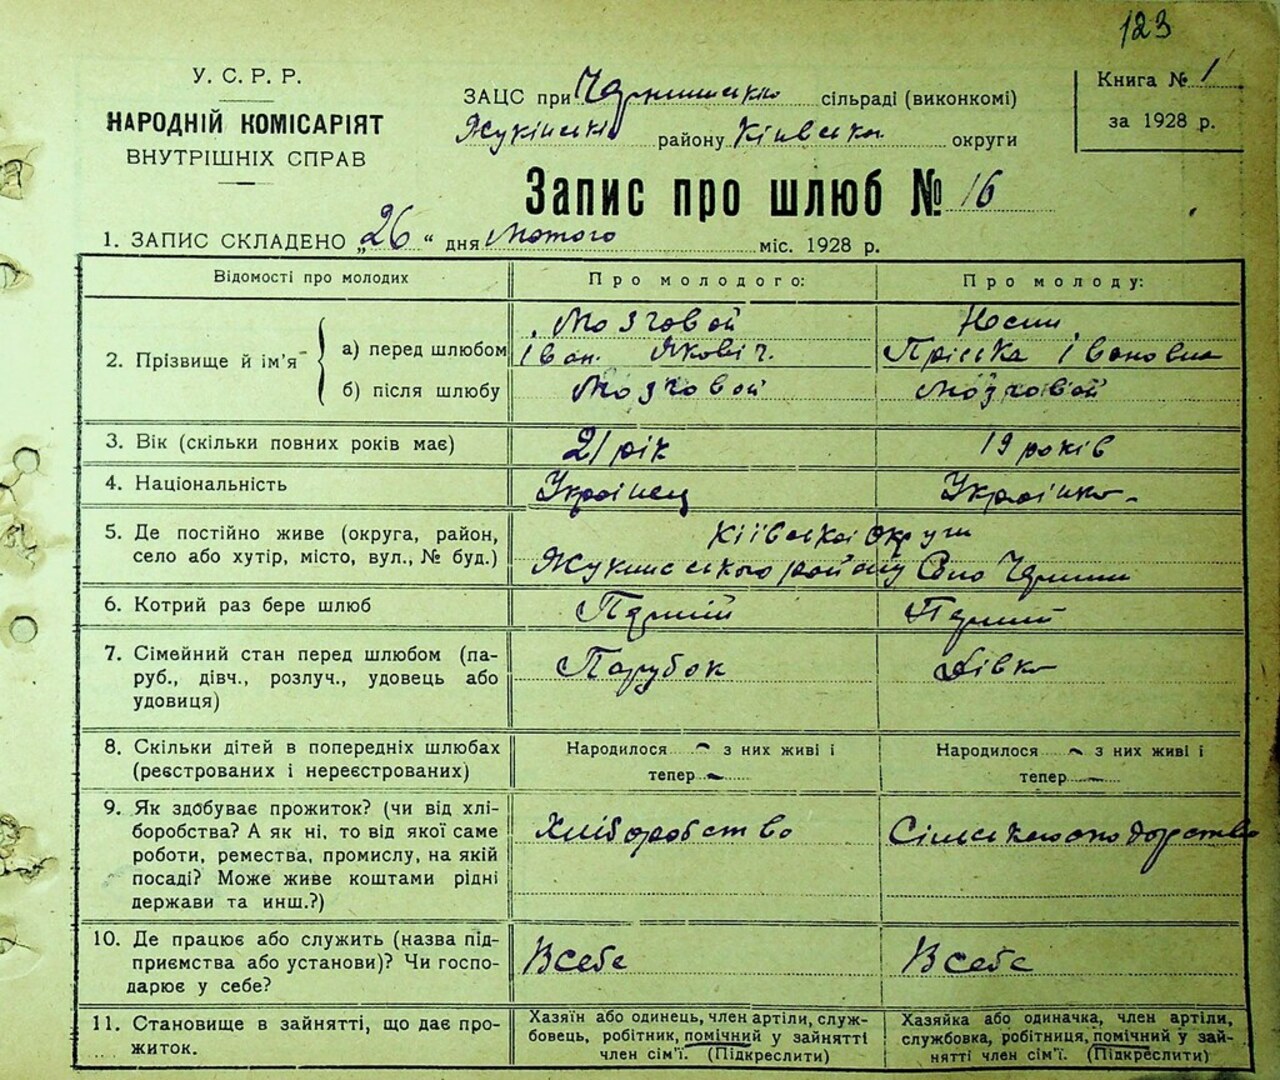 123
У. С. Р. Р.
НАРОДНІЙ КОМІСАРІЯТ
ВНУТРІШНІХ СПРАВ
ЗАЦС при сільраді (виконкомі)
району Київська округи
Книга № 1
за 1928 р.
Запис про шлюб № 16
1. ЗАПИС СКЛАДЕНО „26“ дня Лютого міс. 1928 р.
Відомості про молодих
Про молодого:
Про молоду:
2. Прізвище й ім'я
а) перед шлюбом
б) після шлюбу
Мозговой
Іван Якович.
Мозговой
Носик
Пріська Івановна
Мозговой
3. Вік (скільки повних років має)
21 рік
19 років
4. Національність
Українец
Українка
5. Де постійно живе (округа, район,
село або хутір, місто, вул., № буд.)
Київської округи
району Село
6. Котрий раз бере шлюб
Перший
Перший
7. Сімейний стан перед шлюбом (па-
руб., дівч., розлуч., удовець або
удовиця)
Парубок
Дівка
8. Скільки дітей в попередніх шлюбах
(реєстрованих і нереєстрованих)
Народилося - з них живі і
тепер -
Народилося - з них живі і
тепер -
9. Як здобуває прожиток? (чи від хлі-
боробства? А як ні, то від якої саме
роботи, ремества, промислу, на якій
посаді? Може живе коштами рідні
держави та инш.?)
Хліборобство
10. Де працює або служить (назва під-
приємства або установи)? Чи госпо-
дарює у себе?
В себе
В себе
11. Становище в зайнятті, що дає про-
житок.
Хазяїн або одинець, член артілі, служ-
бовець, робітник, помічний у зайнятті
член сім'ї. (Підкреслити)
Хазяйка або одиначка, член артілі,
службовка, робітниця, помічний у зай-
нятті член сім'ї. (Підкреслити)